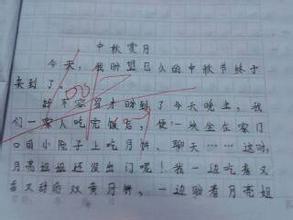 中秋赏月
今天，我盼望已久的中秋节终于
来到了。
好不容易才盼到了今天晚上，我
们一家人吃完饭后，便一块坐在家门
口的小院子上吃月饼、聊天……这时，
月亮姐姐还没出门呢！我一边吃着又
香又甜的双黄月饼，一边盼着月亮姐